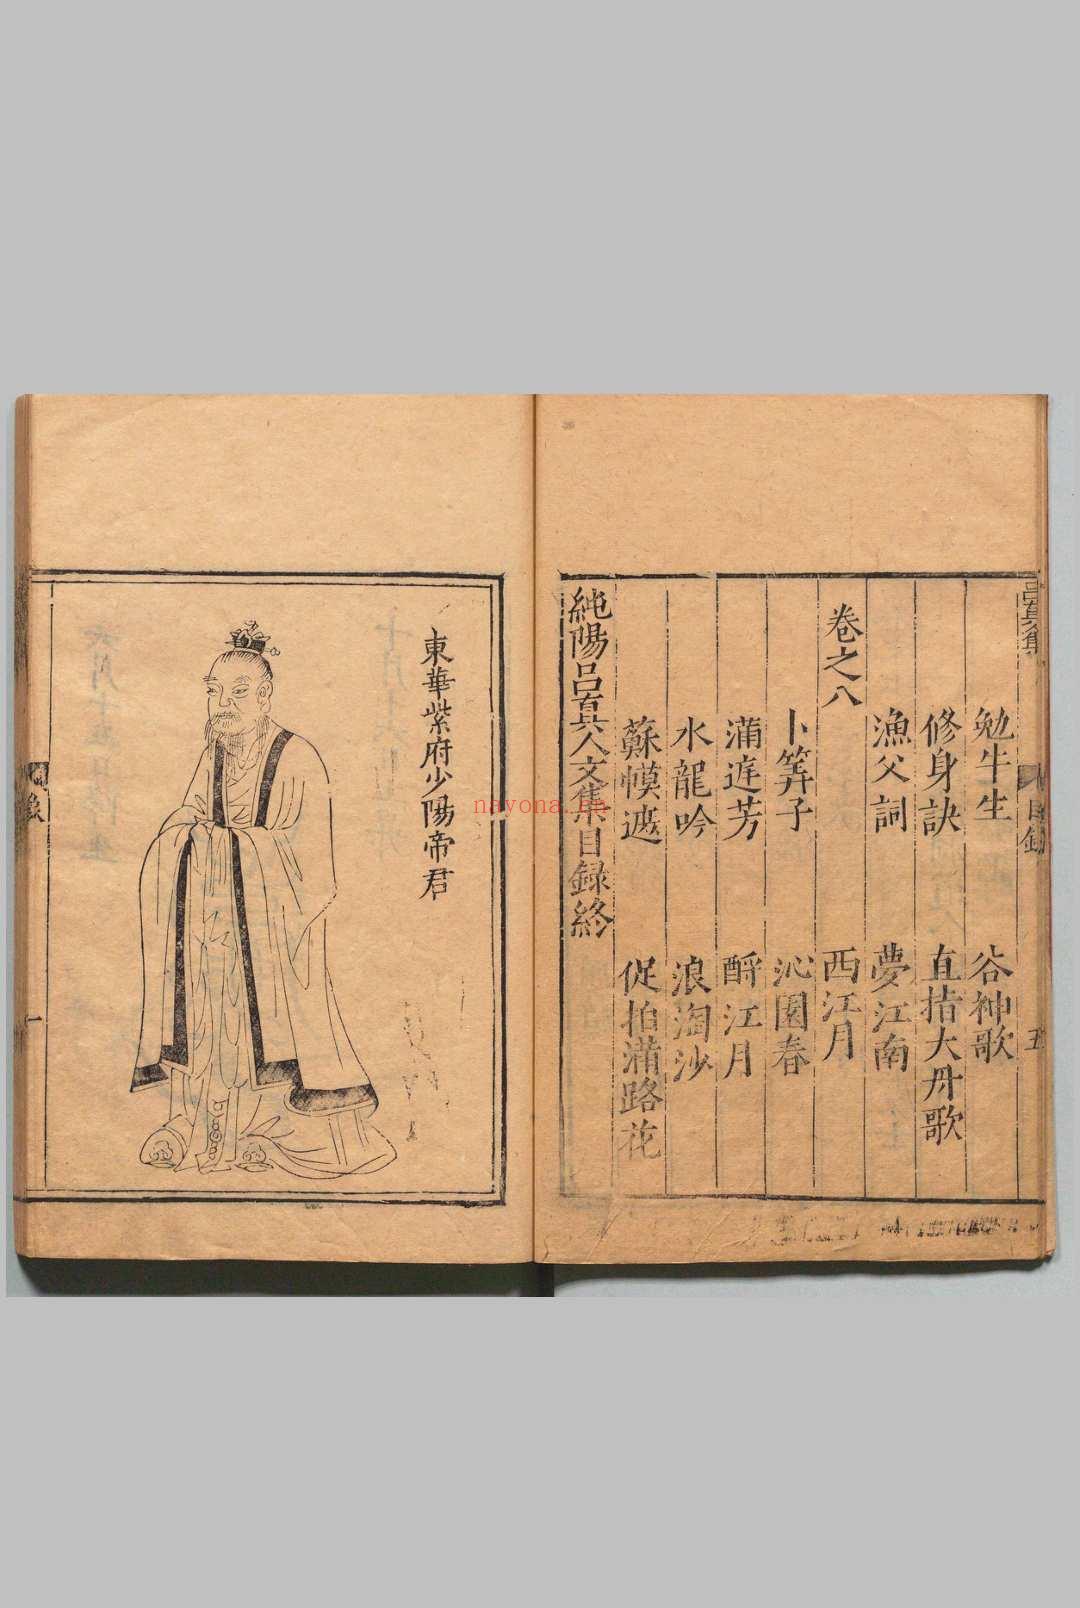 呂真集
目録
五
勉牛生
谷神歌
修身訣
直指大丹歌
漁父詞
夢江南
卷之八
西江月
卜筭子
沁園春
滿庭芳
酹江月
水龍吟
浪淘沙
蘇幙遮
促拍滿路花
純陽呂真人文集目録終
東華紫府少陽帝君
像
一
nayona.cn